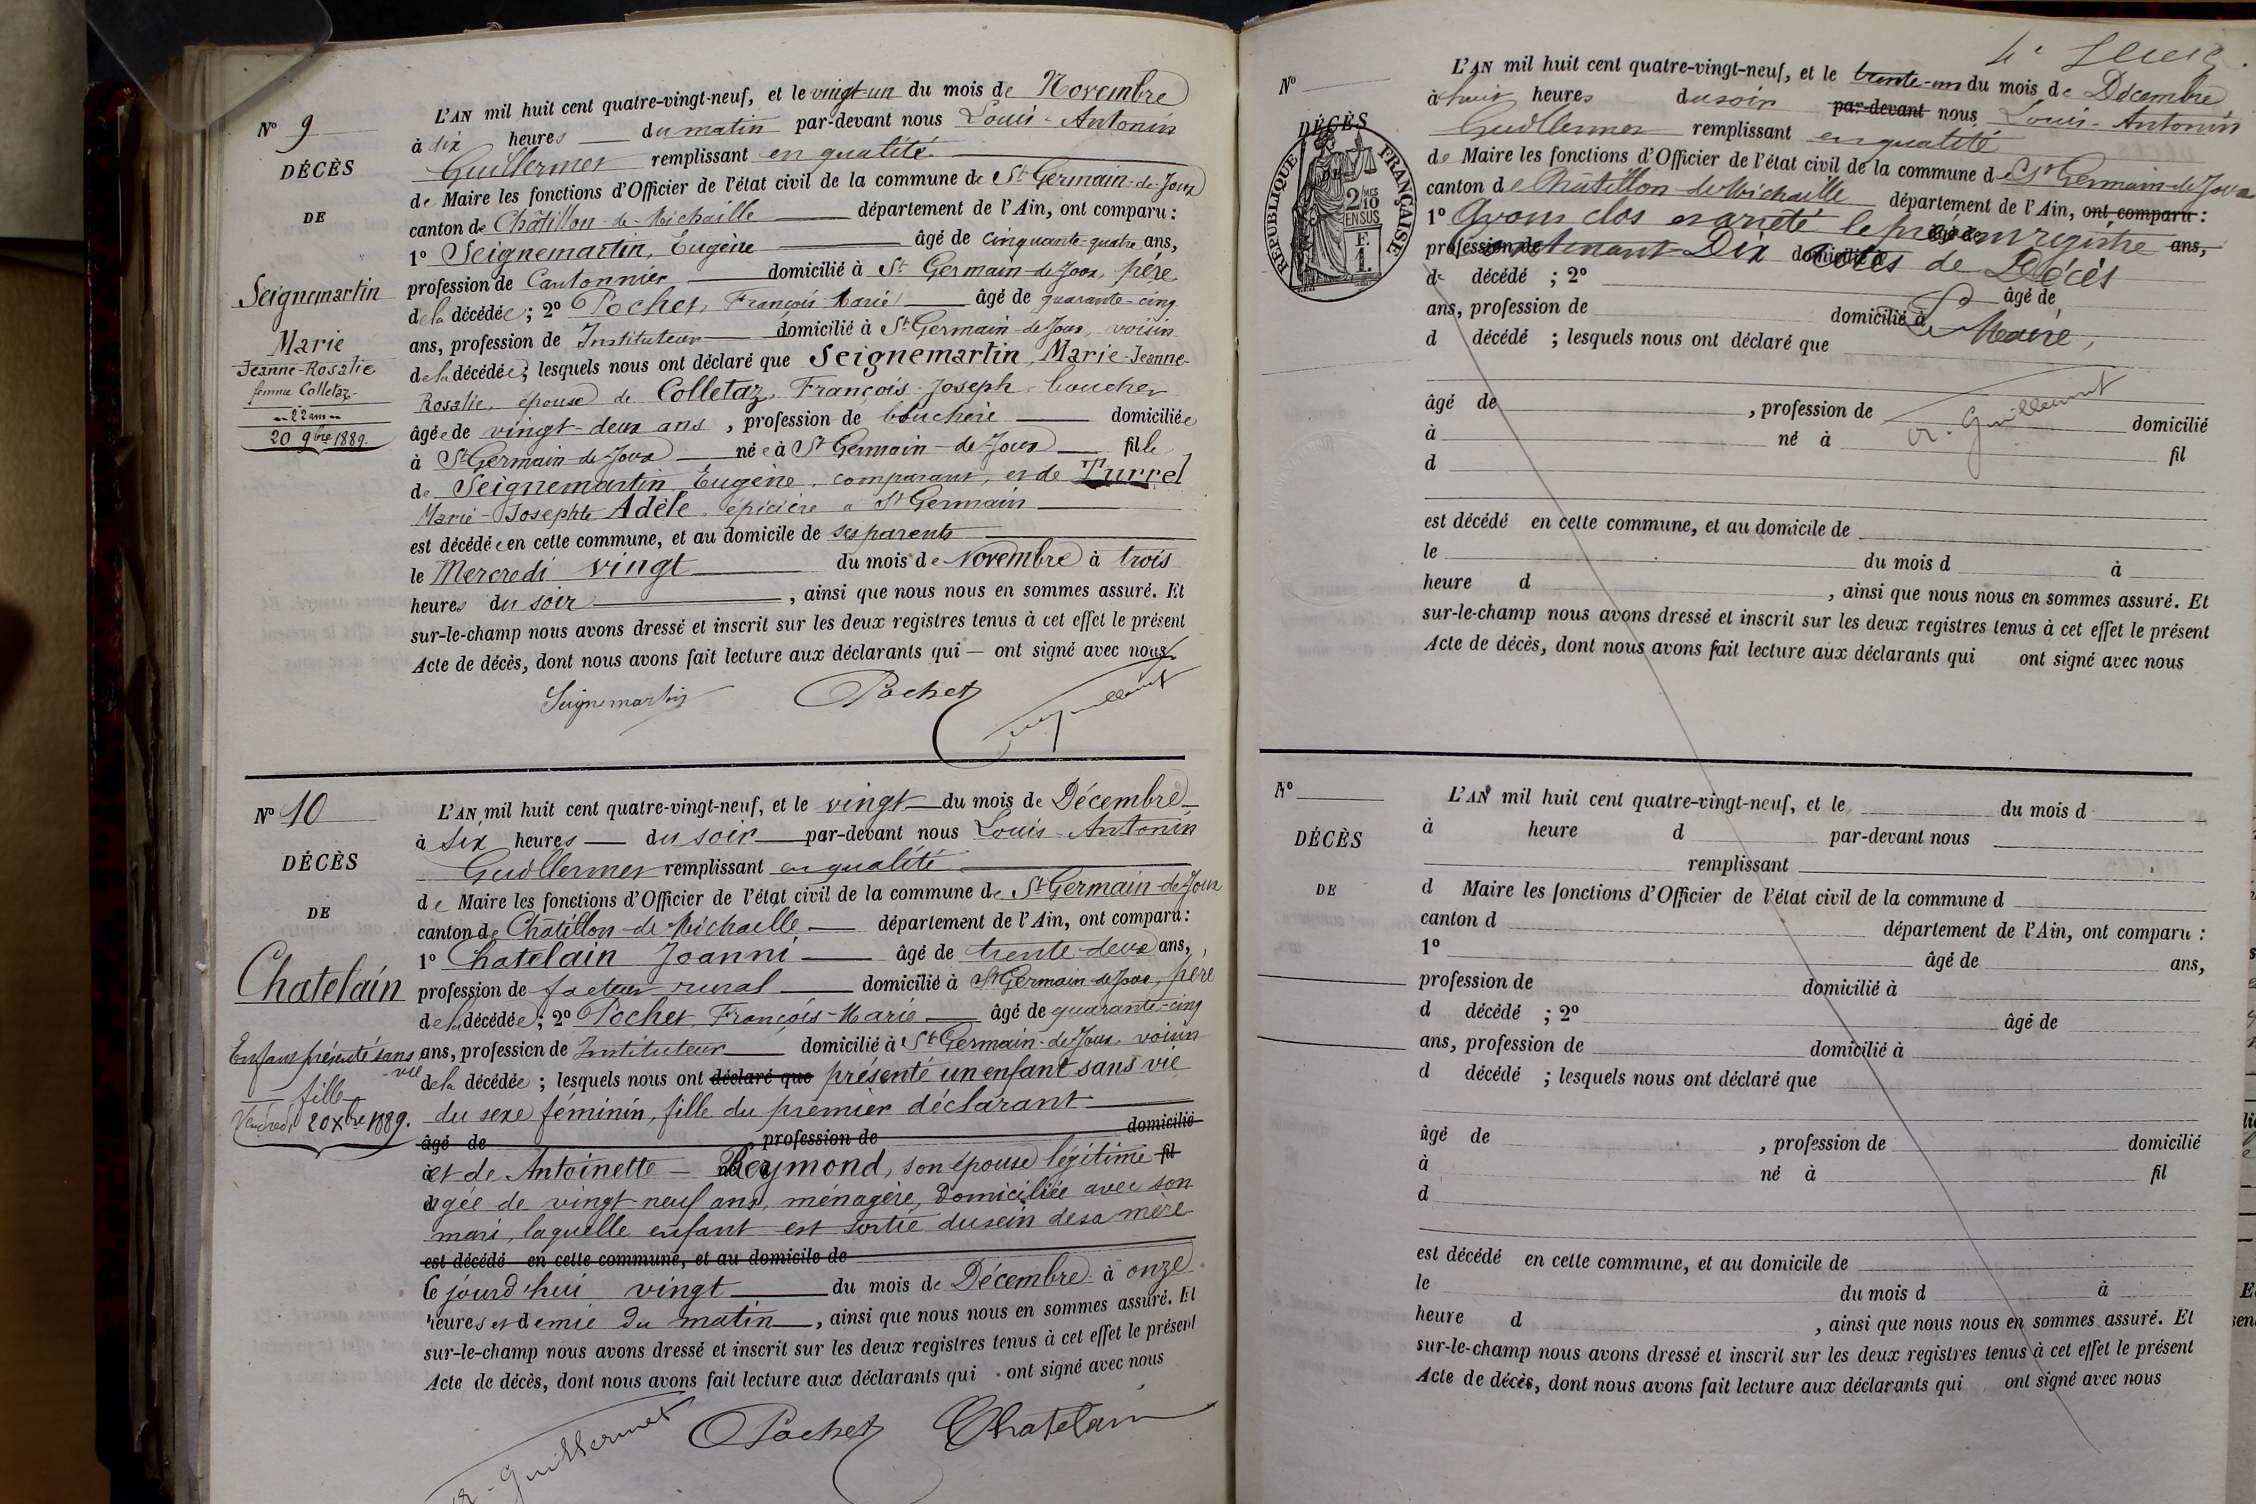 Nº 9
DÉCÈS
DE
Seignemartin
Marie
Jeanne-Rosalie
femme Colletaz
22 ans
20 9bre 1889.
L'AN mil huit cent quatre-vingt-neuf, et le vingt-un du mois de Novembre
à six heures du matin par-devant nous Louis-Antonin
Guillermet remplissant en qualité
de Maire les fonctions d'Officier de l'état civil de la commune de St Germain-de-Joux
canton de Châtillon-de-Michaille département de l'Ain, ont comparu :
1º Seignemartin, Eugène âgé de cinquante-quatre ans,
profession de Cantonnier domicilié à St Germain-de-Joux, père
de la décédée ; 2º Pochet, François-Marie âgé de quarante-cinq
ans, profession de Instituteur domicilié à St Germain-de-Joux, voisin
de la décédée ; lesquels nous ont déclaré que Seignemartin, Marie-Jeanne-
Rosalie, épouse de Colletaz, François-Joseph, boucher
âgée de vingt-deux ans, profession de bouchère domiciliée
à St Germain-de-Joux née à St Germain-de-Joux fille
de Seignemartin, Eugène, comparant, et de Turrel
Marie-Josephte Adèle, épicière à St Germain
est décédée en cette commune, et au domicile de ses parents
le Mercredi vingt du mois de Novembre à trois
heures du soir, ainsi que nous nous en sommes assuré. Et
sur-le-champ nous avons dressé et inscrit sur les deux registres tenus à cet effet le présent
Acte de décès, dont nous avons fait lecture aux déclarants qui — ont signé avec nous
Seignemartin Pochet Guillermet
Nº 10
DÉCÈS
DE
Chatelain
Enfant présenté sans
vie
fille
Vendredi 20 Xbre 1889.
L'AN mil huit cent quatre-vingt-neuf, et le vingt du mois de Décembre
à six heures du soir par-devant nous Louis-Antonin
Guillermet remplissant en qualité
de Maire les fonctions d'Officier de l'état civil de la commune de St Germain-de-Joux
canton de Châtillon-de-Michaille département de l'Ain, ont comparu :
1º Chatelain Joanni âgé de trente-deux ans,
profession de facteur-rural domicilié à St Germain-de-Joux, père
de la décédée ; 2º Pochet, François-Marie âgé de quarante-cinq
ans, profession de Instituteur domicilié à St Germain-de-Joux, voisin
de la décédée ; lesquels nous ont déclaré que présenté un enfant sans vie
du sexe féminin, fille du premier déclarant
âgé de profession de domicilié
et de Antoinette Reymond, son épouse légitime fil
agée de vingt-neuf ans, ménagère, domiciliée avec son
mari, laquelle enfant est sortie du sein de sa mère
est décédé en cette commune, et au domicile de
le jourd'hui vingt du mois de Décembre à onze
heures et demie du matin, ainsi que nous nous en sommes assuré. Et
sur-le-champ nous avons dressé et inscrit sur les deux registres tenus à cet effet le présent
Acte de décès, dont nous avons fait lecture aux déclarants qui ont signé avec nous
Guillermet Pochet Chatelain
Nº
DÉCÈS
DE
RÉPUBLIQUE FRANÇAISE
2/10
EN SUS
F.
1.
L'AN mil huit cent quatre-vingt-neuf, et le trente-un du mois de Décembre
à huit heures du soir par-devant nous Louis-Antonin
Guillermet remplissant en qualité
de Maire les fonctions d'Officier de l'état civil de la commune de St Germain-de-Joux
canton de Châtillon-de-Michaille département de l'Ain, ont comparu :
1º Avons clos et arrêté le présent registre âgé de ans,
profession de contenant Dix actes de Décès domicilié à
d décédé ; 2º âgé de
ans, profession de domicilié à Le Maire,
d décédé ; lesquels nous ont déclaré que
âgé de , profession de domicilié
Guillermet
à né à fil
d
est décédé en cette commune, et au domicile de
le du mois d à
heure d , ainsi que nous nous en sommes assuré. Et
sur-le-champ nous avons dressé et inscrit sur les deux registres tenus à cet effet le présent
Acte de décès, dont nous avons fait lecture aux déclarants qui ont signé avec nous
Nº
DÉCÈS
DE
L'AN mil huit cent quatre-vingt-neuf, et le du mois d
à heure d par-devant nous
remplissant
d Maire les fonctions d'Officier de l'état civil de la commune d
canton d département de l'Ain, ont comparu :
1º âgé de ans,
profession de domicilié à
d décédé ; 2º âgé de
ans, profession de domicilié à
d décédé ; lesquels nous ont déclaré que
âgé de , profession de domicilié
à né à fil
d
est décédé en cette commune, et au domicile de
le du mois d à
heure d , ainsi que nous nous en sommes assuré. Et
sur-le-champ nous avons dressé et inscrit sur les deux registres tenus à cet effet le présent
Acte de décès, dont nous avons fait lecture aux déclarants qui ont signé avec nous